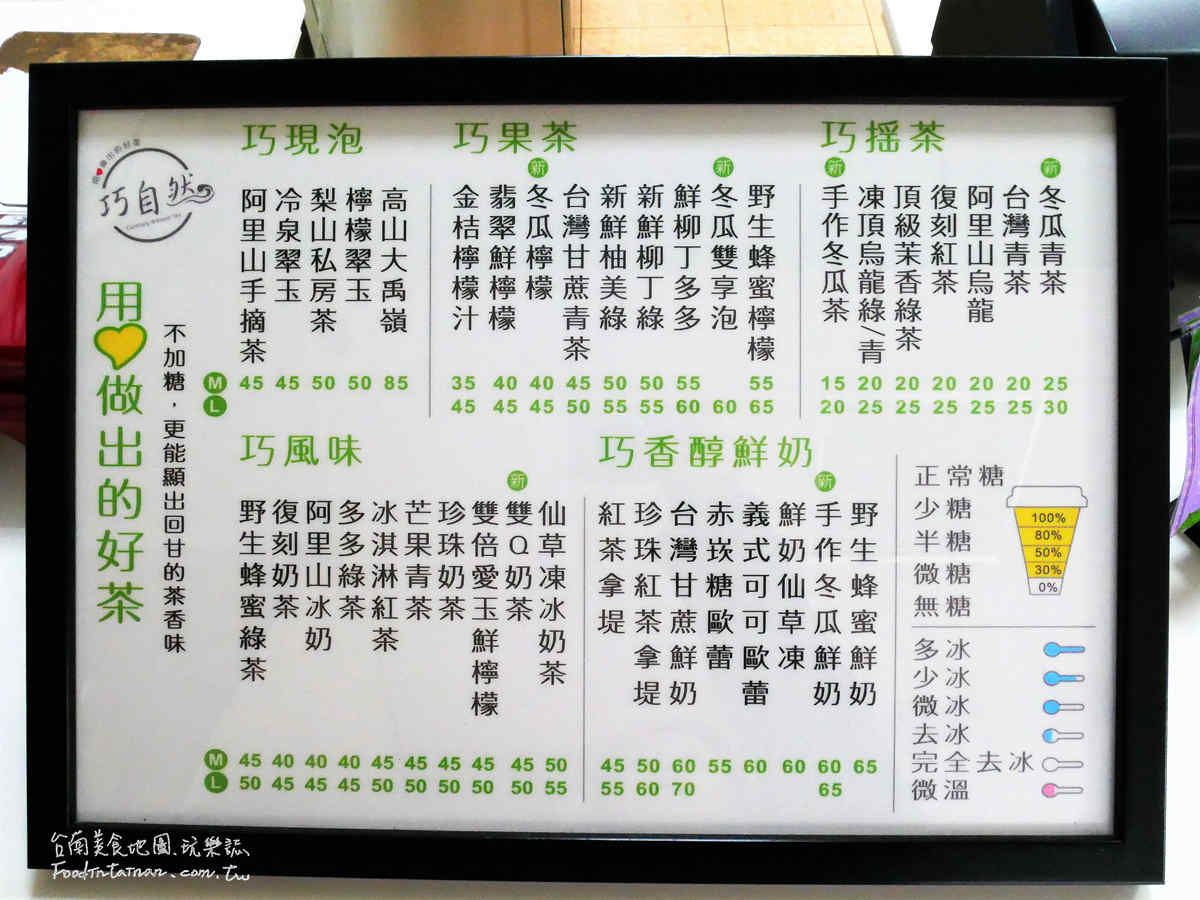 巧自然
用做出的好茶
不加糖，更能顯出回甘的茶香味
巧現泡
阿里山手摘茶
冷泉翠玉
梨山私房茶
檸檬翠玉
高山大禹嶺
M 45 45 50 50 85
L
巧果茶
金桔檸檬汁
翡翠鮮檸檬
新
冬瓜檸檬
台灣甘蔗青茶
新鮮柚美綠
新鮮柳丁綠
鮮柳丁多多
新
冬瓜雙享泡
野生蜂蜜檸檬
35 40 40 45 50 50 55 55
45 45 45 50 55 55 60 60 65
巧搖茶
新
手作冬瓜茶
凍頂烏龍綠/青
頂級茉香綠茶
復刻紅茶
阿里山烏龍
台灣青茶
新
冬瓜青茶
15 20 20 20 20 20 25
20 25 25 25 25 25 30
巧風味
野生蜂蜜綠茶
復刻奶茶
阿里山冰奶
多多綠茶
冰淇淋紅茶
芒果青茶
珍珠奶茶
雙倍愛玉鮮檸檬
新
雙Q奶茶
仙草凍冰奶茶
M 45 40 40 40 45 45 45 45 45 50
L 50 45 45 45 50 50 50 50 50 55
巧香醇鮮奶
紅茶拿堤
珍珠紅茶拿堤
台灣甘蔗鮮奶
赤崁糖歐蕾
義式可可歐蕾
鮮奶仙草凍
新
手作冬瓜鮮奶
野生蜂蜜鮮奶
45 50 60 55 60 60 60 65
55 60 70 65
正常糖 100%
少糖 80%
半糖 50%
微糖 30%
無糖 0%
多冰
少冰
微冰
去冰
完全去冰
微溫
台南美食地圖.玩樂誌
Foodintainan.com.tw